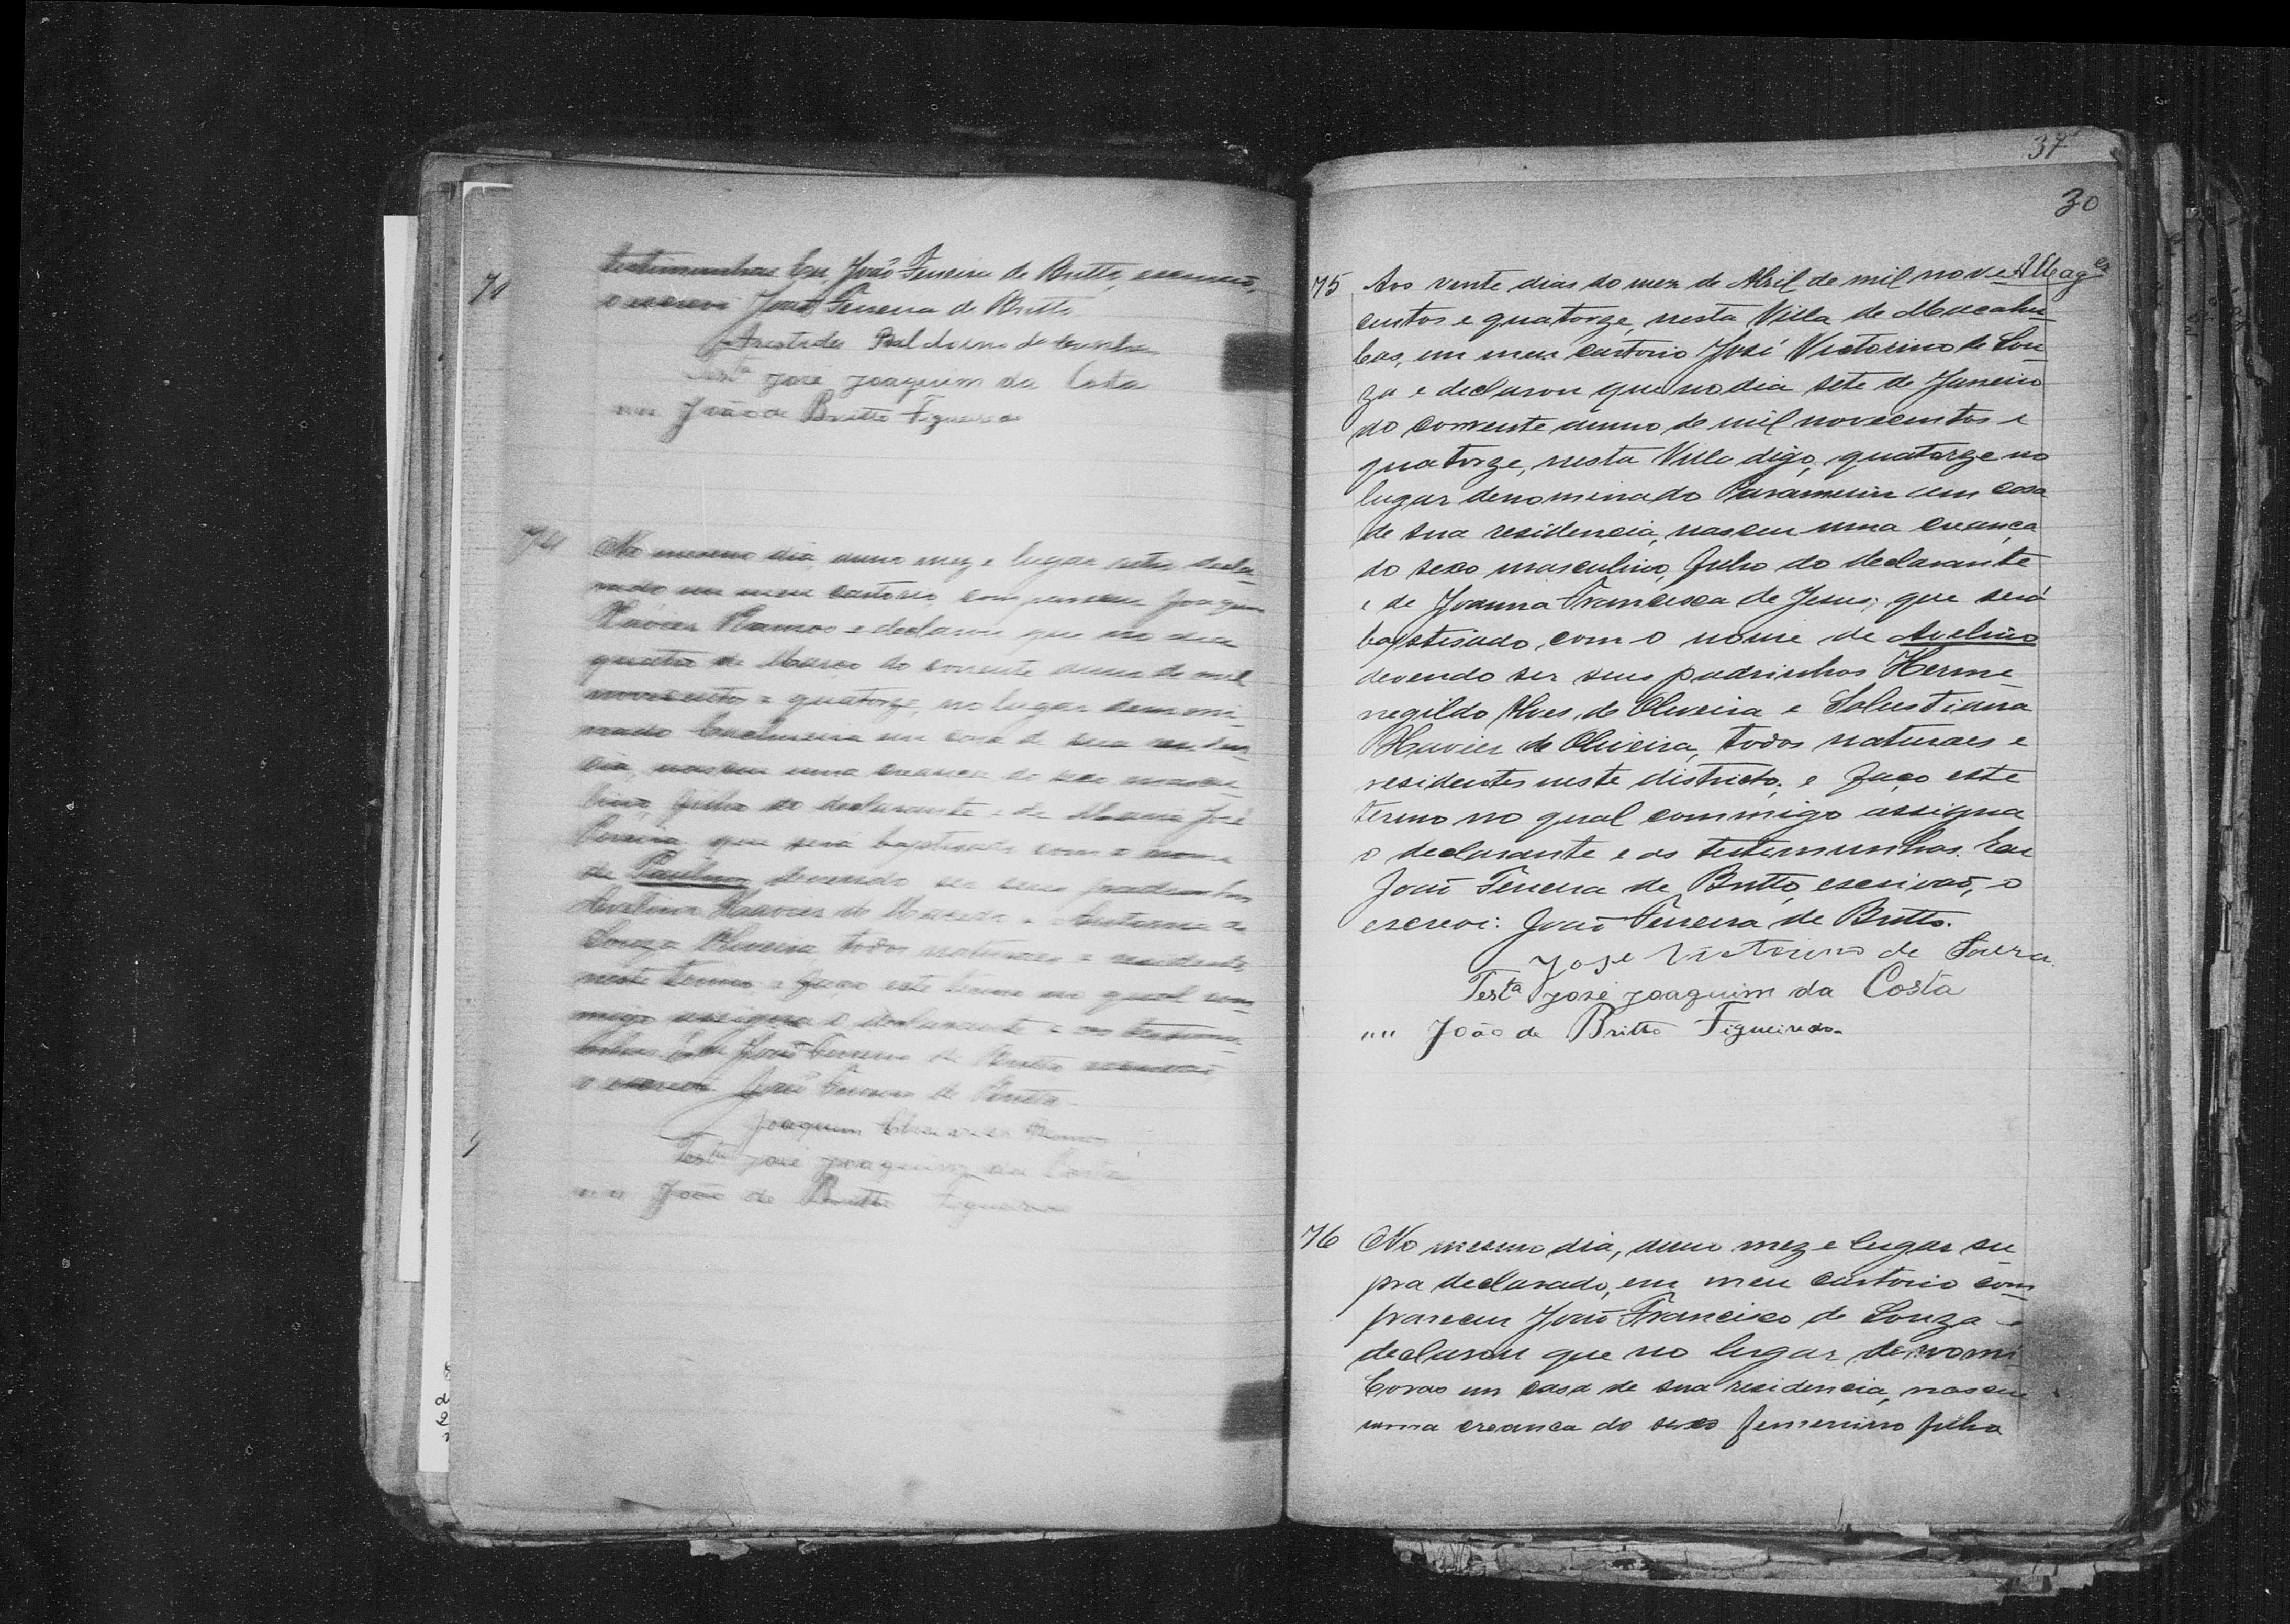 testimunhas. Eu, João Ferreira de Britto, escrivão,
o escrevi João Ferreira de Britto.
Aristides Balduino da Cunha
Testª José Joaquim da Costa
"" João de Britto Figueiredo
74 No mesmo dia, anno mez e lugar retro decla-
rado em meu cartorio, compareceu Joaquim
Xavier Ramos e declarou que no dia
quatro de Março do corrente anno de mil
novecentos e quatorze, no lugar denomi-
nado em casa de sua residen-
cia, nasceu uma creança do sexo mascu-
lino, filho do declarante e de Maria José
Pereira, que será baptisado com o nome
de Paulino, devendo ser seus padrinhos
Avelino Xavier de Macedo e Antonia de
Souza Oliveira, todos naturaes e residentes
neste termo, e faço este termo no qual com-
migo assigna o declarante e as testimu-
nhas. Eu João Ferreira de Britto escrivão,
o escrevi. João Ferreira de Britto.
Joaquim Ramos
Testª José Joaquim da Costa
"" João de Britto Figueiredo
37
30
75 Aos vente dias do mez de Abril de mil nove
centos e quatorze, nesta Villa de Macahu-
bas, em meu cartorio José Victorino de Sou-
za e declarou que no dia sete de Janeiro
do corrente anno de mil novecentos e
quatorze, nesta Villa digo, quatorze no
lugar denominado Paramirim em casa
de sua residencia, nasceu uma creança
do sexo masculino, filho do declarante
e de Joanna Francisca de Jesus; que será
baptisado, com o nome de Avelino
devendo ser seus padrinhos Herme
negildo Alves de Oliveira e Salustiana
Xavier de Oliveira, todos naturaes e
residentes neste districto, e faço este
termo no qual commigo assigna
o declarante e as testimunhas. Eu
João Ferreira de Britto, escrivão, o
escrevi: João Ferreira de Britto.
José Victorino de Souza.
Testª José Joaquim da Costa
"" João de Britto Figueiredo.
76 No mesmo dia, anno mez e lugar su
pra declarado, em meu cartorio com
pareceu João Francisco de Souza e
declarou que no lugar denomi
Covas em casa de sua residencia, nasceu
uma creança do sexo femenino filha